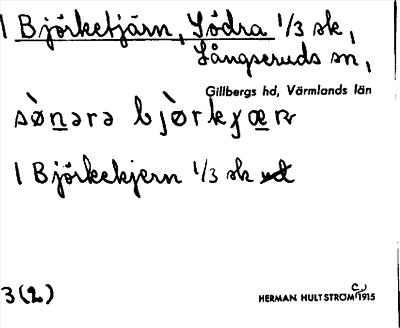 1 Björketjärn, Södra 1/3 sk,
Långseruds sn,
Gillbergs hd, Värmlands län
1 Björkekjern 1/3 sk
3 (2)
HERMAN HULTSTRÖM 1915